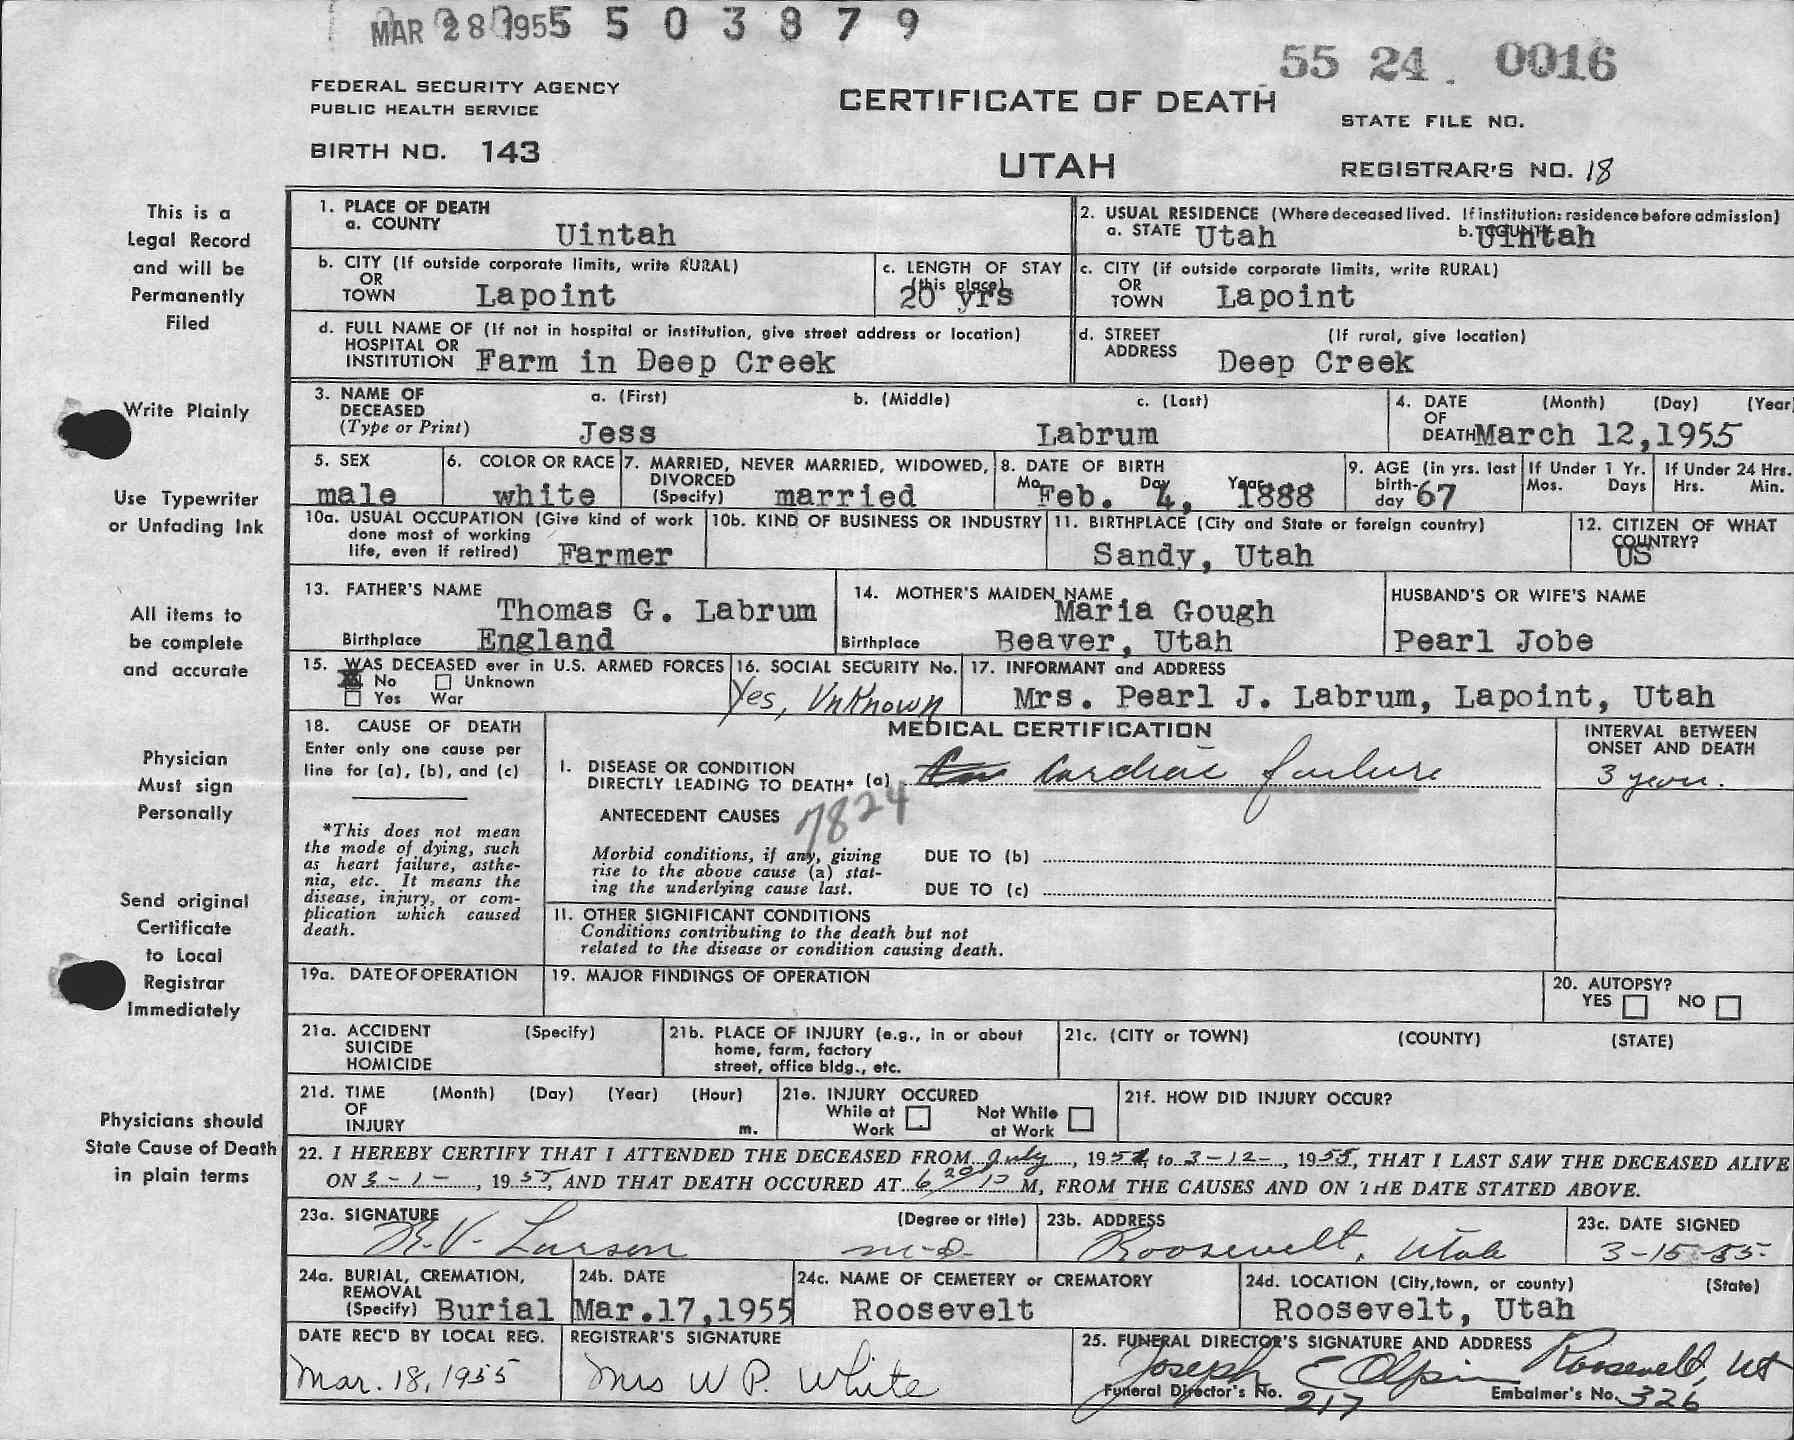 MAR 28 1955 5 0 3 8 7 9
55 24 0016
FEDERAL SECURITY AGENCY
PUBLIC HEALTH SERVICE
CERTIFICATE OF DEATH
STATE FILE NO.
BIRTH NO. 143
UTAH
REGISTRAR'S NO. 18
This is a
Legal Record
and will be
Permanently
Filed
Write Plainly
Use Typewriter
or Unfading Ink
All items to
be complete
and accurate
Physician
Must sign
Personally
Send original
Certificate
to Local
Registrar
Immediately
Physicians should
State Cause of Death
in plain terms
1. PLACE OF DEATH
a. COUNTY Uintah
2. USUAL RESIDENCE (Where deceased lived. If institution: residence before admission)
a. STATE Utah b. COUNTY Uintah
b. CITY (If outside corporate limits, write RURAL)
OR
TOWN Lapoint
c. LENGTH OF STAY
(this place)
20 yrs
c. CITY (if outside corporate limits, write RURAL)
OR
TOWN Lapoint
d. FULL NAME OF (If not in hospital or institution, give street address or location)
HOSPITAL OR
INSTITUTION Farm in Deep Creek
d. STREET (If rural, give location)
ADDRESS Deep Creek
3. NAME OF a. (First) b. (Middle) c. (Last)
DECEASED
(Type or Print) Jess Labrum
4. DATE (Month) (Day) (Year)
OF
DEATH March 12, 1955
5. SEX
male
6. COLOR OR RACE
white
7. MARRIED, NEVER MARRIED, WIDOWED,
DIVORCED
(Specify) married
8. DATE OF BIRTH
Mo. Day Year
Feb. 4, 1888
9. AGE (in yrs. last
birth-
day 67
If Under 1 Yr.
Mos. Days
If Under 24 Hrs.
Hrs. Min.
10a. USUAL OCCUPATION (Give kind of work
done most of working
life, even if retired) Farmer
10b. KIND OF BUSINESS OR INDUSTRY
11. BIRTHPLACE (City and State or foreign country)
Sandy, Utah
12. CITIZEN OF WHAT
COUNTRY?
US
13. FATHER'S NAME
Thomas G. Labrum
Birthplace England
14. MOTHER'S MAIDEN NAME
Maria Gough
Birthplace Beaver, Utah
HUSBAND'S OR WIFE'S NAME
Pearl Jobe
15. WAS DECEASED ever in U.S. ARMED FORCES
No Unknown
Yes War
16. SOCIAL SECURITY No.
Yes, Unknown
17. INFORMANT and ADDRESS
Mrs. Pearl J. Labrum, Lapoint, Utah
18. CAUSE OF DEATH
Enter only one cause per
line for (a), (b), and (c)
*This does not mean
the mode of dying, such
as heart failure, asthe-
nia, etc. It means the
disease, injury, or com-
plication which caused
death.
MEDICAL CERTIFICATION
I. DISEASE OR CONDITION
DIRECTLY LEADING TO DEATH* (a) Cardiac failure
7824
ANTECEDENT CAUSES
Morbid conditions, if any, giving
rise to the above cause (a) stat-
ing the underlying cause last.
DUE TO (b)
DUE TO (c)
II. OTHER SIGNIFICANT CONDITIONS
Conditions contributing to the death but not
related to the disease or condition causing death.
INTERVAL BETWEEN
ONSET AND DEATH
3 years.
19a. DATE OF OPERATION
19. MAJOR FINDINGS OF OPERATION
20. AUTOPSY?
YES NO
21a. ACCIDENT (Specify)
SUICIDE
HOMICIDE
21b. PLACE OF INJURY (e.g., in or about
home, farm, factory
street, office bldg., etc.
21c. (CITY or TOWN) (COUNTY) (STATE)
21d. TIME (Month) (Day) (Year) (Hour)
OF
INJURY m.
21e. INJURY OCCURED
While at Work Not While at Work
21f. HOW DID INJURY OCCUR?
22. I HEREBY CERTIFY THAT I ATTENDED THE DECEASED FROM July, 195 to 3-12-, 1955, THAT I LAST SAW THE DECEASED ALIVE
ON 3-1-, 1955, AND THAT DEATH OCCURED AT 6 20 P M, FROM THE CAUSES AND ON THE DATE STATED ABOVE.
23a. SIGNATURE (Degree or title)
R.V. Larson M.D.
23b. ADDRESS
Roosevelt, Utah
23c. DATE SIGNED
3-15-55
24a. BURIAL, CREMATION,
REMOVAL
(Specify) Burial
24b. DATE
Mar.17,1955
24c. NAME OF CEMETERY or CREMATORY
Roosevelt
24d. LOCATION (City,town, or county) (State)
Roosevelt, Utah
DATE REC'D BY LOCAL REG.
Mar. 18, 1955
REGISTRAR'S SIGNATURE
Mrs W P. White
25. FUNERAL DIRECTOR'S SIGNATURE AND ADDRESS
Joseph E Olpin Roosevelt, Ut
Funeral Director's No. 217 Embalmer's No. 326